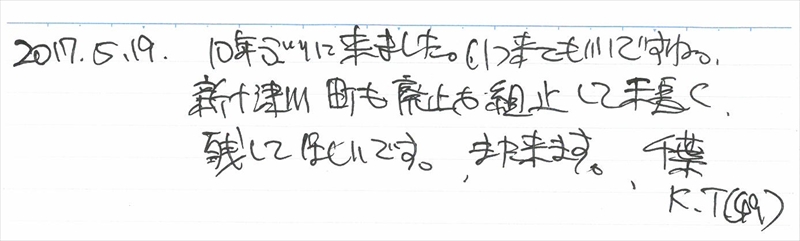 2017.5.19. 10年ぶりに来ました。いつ来てもいいですね。
新十津川町も廃止も阻止して末長く
残してほしいです。また来ます。千葉
K.T(49)